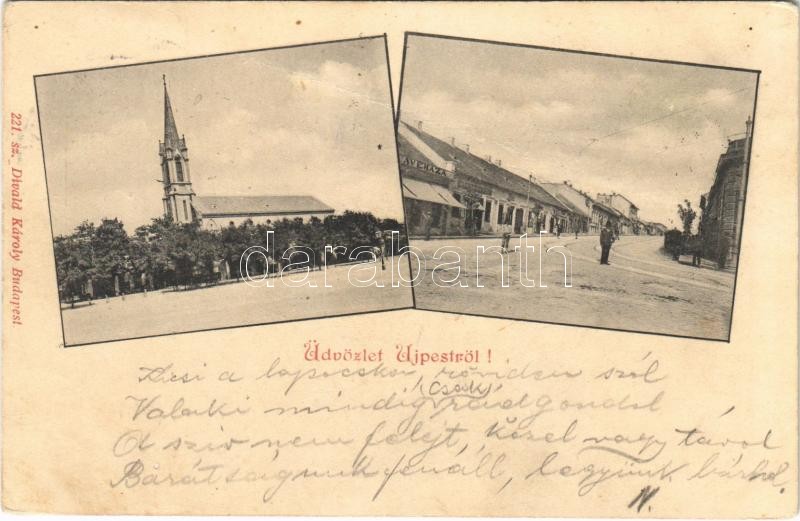 221. sz. Divald Károly Budapest
ÁVÉHÁZA
darabanth
Üdvözlet Ujpestről !
Kicsi a lapocska, röviden szól
(Csak)
Valaki mindig reád gondol
A sziv nem felejt, közel vagy távol
Barátságunk fenáll, legyünk bárhol.
N.